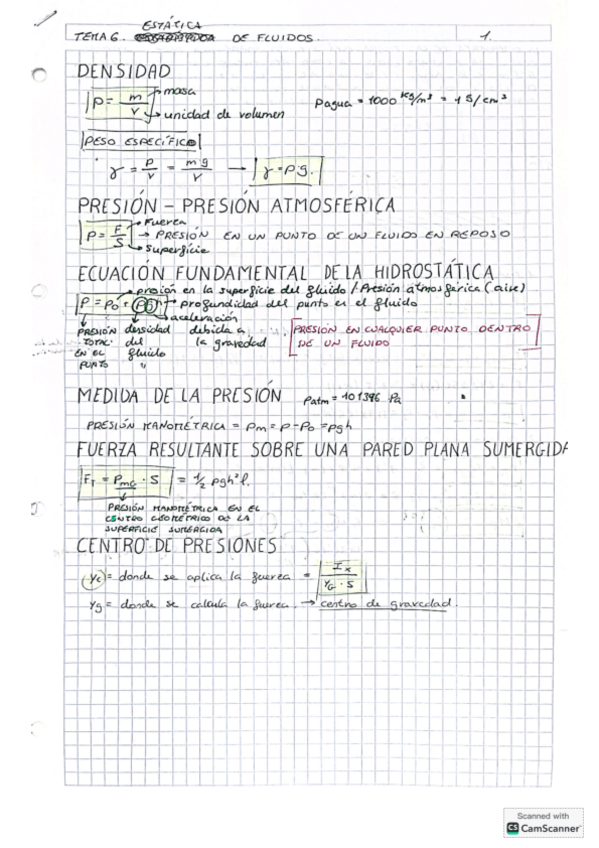 ESTÁTICA
TEMA 6. DE FLUIDOS. 1.
DENSIDAD
ρ = m/V → masa
→ unidad de volumen
ρagua = 1000 kg/m³ = 1 g/cm³
PESO ESPECÍFICO
γ = P/V = m·g/V → γ = ρg.
PRESIÓN - PRESIÓN ATMOSFÉRICA
P = F/S → Fuerza
→ PRESIÓN EN UN PUNTO DE UN FLUIDO EN REPOSO
→ Superficie
ECUACIÓN FUNDAMENTAL DE LA HIDROSTÁTICA
presión en la superficie del fluido / Presión atmosférica (aire)
P = P₀ + ρg → profundidad del punto en el fluido
aceleración
PRESIÓN densidad debida a
TOTAL del la gravedad
EN EL fluido
PUNTO "
PRESIÓN EN CUALQUIER PUNTO DENTRO
DE UN FLUIDO
MEDIDA DE LA PRESIÓN Patm = 101396 Pa
PRESIÓN MANOMÉTRICA = Pm = P - P₀ = ρgh
FUERZA RESULTANTE SOBRE UNA PARED PLANA SUMERGIDA
FT = PmG · S = ½ ρgh²l.
PRESIÓN MANOMÉTRICA EN EL
CENTRO GEOMÉTRICO DE LA
SUPERFICIE SUMERGIDA
CENTRO DE PRESIONES
yc = donde se aplica la fuerza = Ix / YG · S
yg = donde se calcula la fuerza. → centro de gravedad.
Scanned with
CS CamScanner